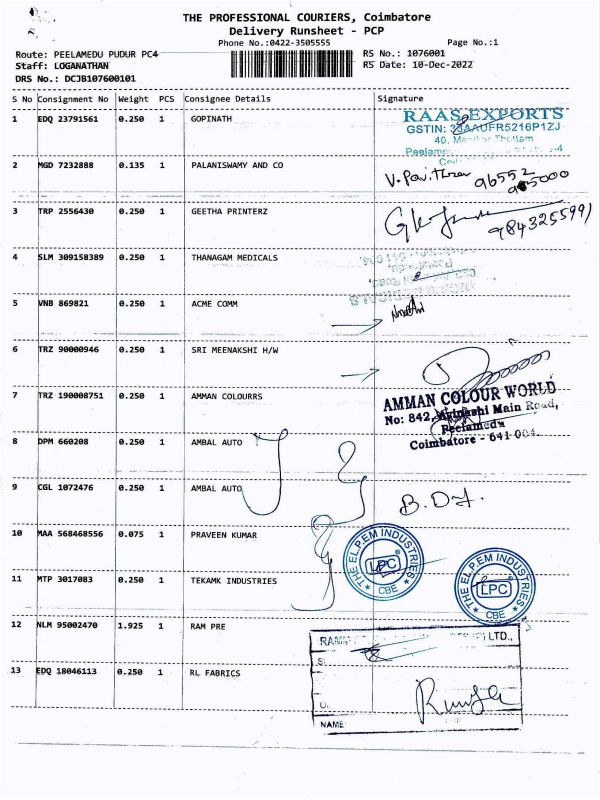 THE PROFESSIONAL COURIERS, Coimbatore
Delivery Runsheet - PCP
Phone No.:0422-3505555 Page No.:1
Route: PEELAMEDU PUDUR PC4 RS No.: 1076001
Staff: LOGANATHAN RS Date: 10-Dec-2022
DRS No.: DCJB107600101
S No Consignment No Weight PCS Consignee Details Signature
1 EDQ 23791561 0.250 1 GOPINATH
RAAS EXPORTS
GSTIN: 33AAUFR5216P1ZJ
40,
2 MGD 7232888 0.135 1 PALANISWAMY AND CO
V. Pavithra 96552
3 TRP 2556430 0.250 1 GEETHA PRINTERZ
9843255991
4 SLM 309158389 0.250 1 THANAGAM MEDICALS
5 VNB 869821 0.250 1 ACME COMM
6 TRZ 90000946 0.250 1 SRI MEENAKSHI H/W
7 TRZ 190008751 0.250 1 AMMAN COLOURRS
AMMAN COLOUR WORLD
No: 842, Avinashi Main Road,
Peelamedu
Coimbatore - 641 004.
8 DPM 660208 0.250 1 AMBAL AUTO
9 CGL 1072476 0.250 1 AMBAL AUTO
10 MAA 568468556 0.075 1 PRAVEEN KUMAR
THE EL.PEM INDUSTRIES
LPC
CBE
11 MTP 3017083 0.250 1 TEKAMK INDUSTRIES
THE EL.PEM INDUSTRIES
LPC
CBE
12 NLM 95002470 1.925 1 RAM PRE
LTD.,
13 EDQ 18046113 0.250 1 RL FABRICS
NAME